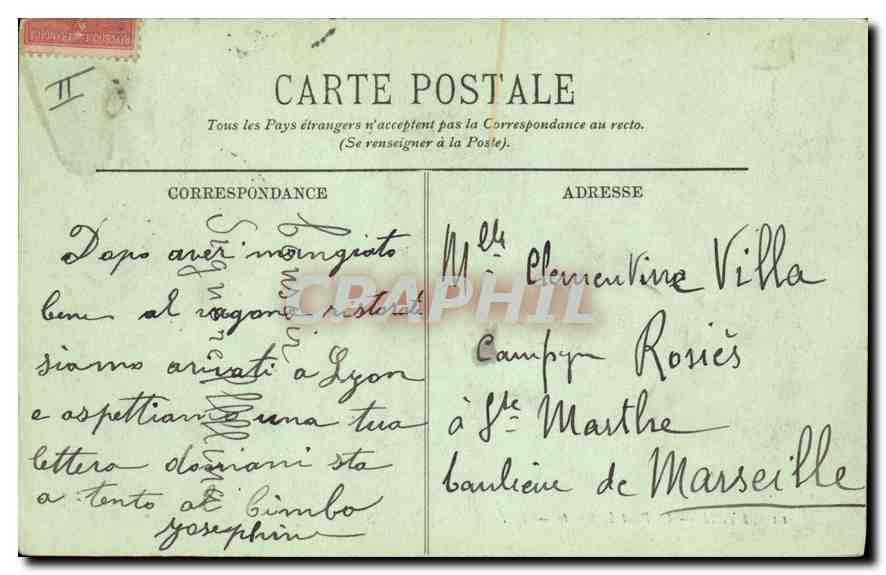 II
CARTE POSTALE
Tous les Pays étrangers n'acceptent pas la Correspondance au recto.
(Se renseigner à la Poste).
CORRESPONDANCE
ADRESSE
Dopo aver mangiato
bene al vagone ristorate
siamo arivati a Lyon
e aspettiamo una tua
lettera domani sta
a tento al bimbo
Josephine
bonsoir
Signorel
Mlle Clementine Villa
Campagne Rosiès
à Ste Marthe
banlieue de Marseille
CRAPHIL